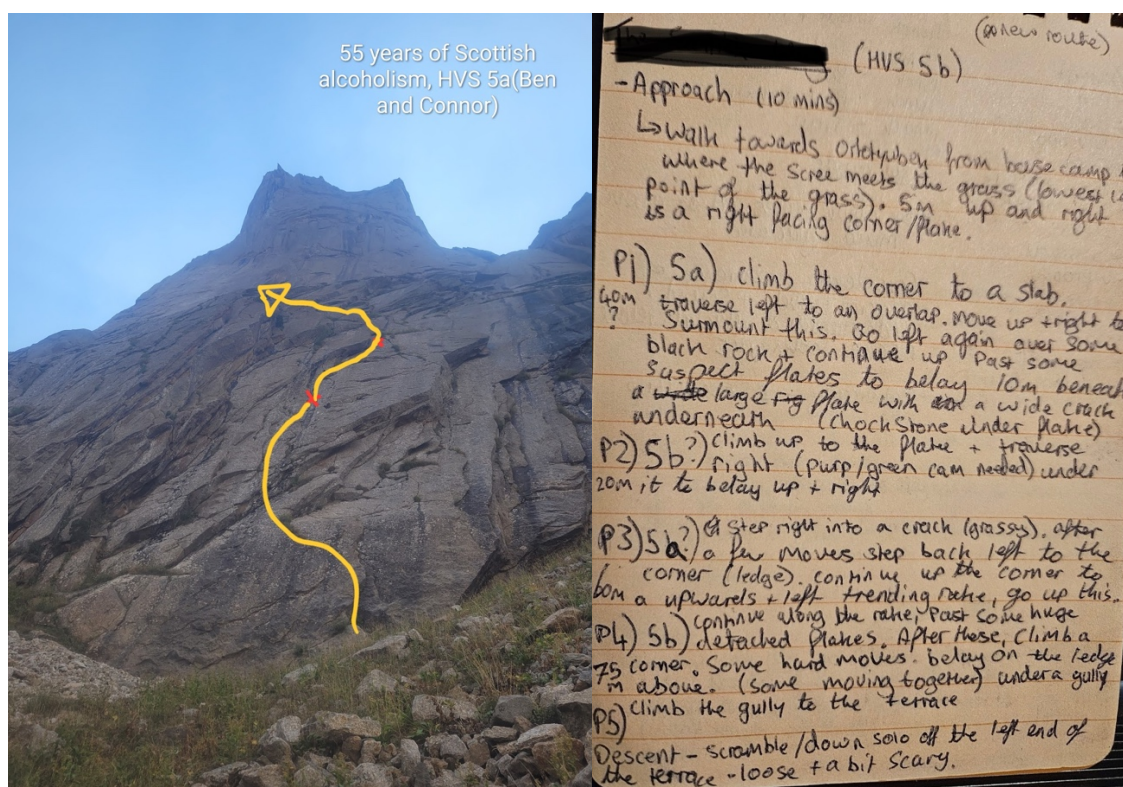 55 years of Scottish
alcoholism, HVS 5a(Ben
and Connor)
(new route)
(HVS 5b)
- Approach (10 mins)
↳ Walk towards Ortotyubek from base camp
where the scree meets the grass (lowest
point of the grass). 5m up and right
is a right facing corner/flake.
P1) 5a) climb the corner to a slab.
40m traverse left to an overlap. Move up + right to
? Surmount this. Go left again over some
black rock + continue up past some
suspect flakes to belay 10m beneath
a large flake with a wide crack
underneath (chockstone under flake)
P2) 5b?) climb up to the flake + traverse
right (purp/green cam needed) under
20m it to belay up + right
P3) 5a?) step right into a crack (grassy). after
a few moves step back left to the
corner (ledge). continue up the corner to
60m a upwards + left trending rake, go up this.
P4) 5b) continue along the rake, past some huge
detached flakes. After these, climb a
75m corner. Some hard moves. belay on the ledge
above. (some moving together) under a gully
P5) Climb the gully to the terrace
Descent - scramble/down solo off the left end of
the terrace - loose + a bit scary.